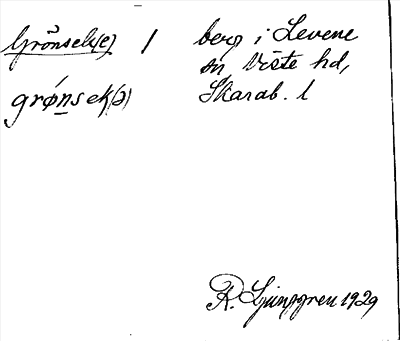 Grönsek(e) / berg i Levene
sn Viste hd,
grǿn̲sek(ə) Skarab. l
R. Ljunggren 1929